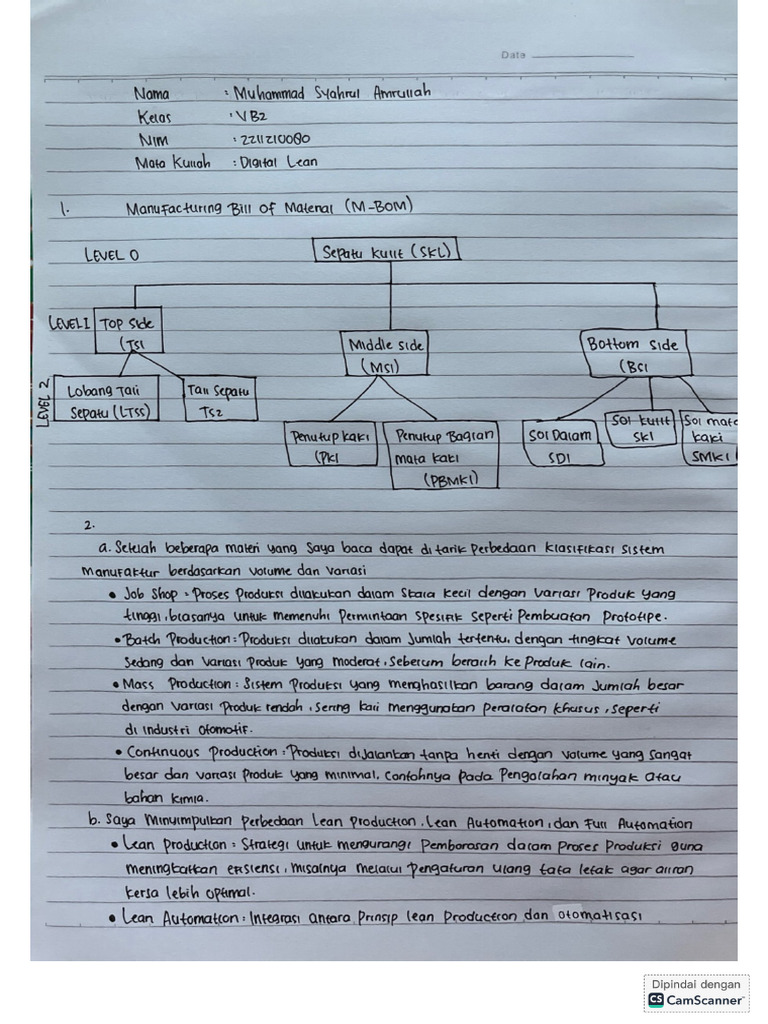 Date
Nama : Muhammad Syahrul Amrullah
Kelas : VB2
NIM : 2211210080
Mata Kuliah : Digital Lean
1. Manufacturing Bill Of Material (M-BOM)
LEVEL 0
Sepatu Kulit (SKL)
LEVEL 1
Top Side
(TS1
Middle side
(MS1)
Bottom side
(BS1
LEVEL 2
Lobang Tali
Sepatu (LTSS)
Tali Sepatu
TS2
Penutup kaki
(PK1
Penutup Bagian
mata kaki
(PBMK1)
Sol Dalam
SD1
Sol kulit
SK1
Sol mata
kaki
SMK1
2.
a. Setelah beberapa materi yang saya baca dapat di tarik Perbedaan klasifikasi sistem
Manufaktur berdasarkan volume dan variasi
• Job Shop : Proses Produksi dilakukan dalam skala kecil dengan variasi Produk yang
tinggi, biasanya untuk memenuhi Permintaan spesifik seperti Pembuatan Prototipe.
• Batch Production : Produksi dilakukan dalam Jumlah tertentu, dengan tingkat volume
sedang dan variasi Produk yang moderat, sebelum beralih ke Produk lain.
• Mass Production : Sistem Produksi yang menghasilkan barang dalam Jumlah besar
dengan variasi Produk rendah, sering kali menggunakan Peralatan khusus, seperti
di industri otomotif.
• Continuous Production : Produksi dijalankan tanpa henti dengan volume yang sangat
besar dan variasi Produk yang minimal, Contohnya Pada Pengolahan minyak atau
bahan kimia.
b. Saya Minyimpulkan Perbedaan Lean Production, Lean Automation, dan Full Automation
• Lean Production : Strategi untuk mengurangi Pemborosan dalam Proses Produksi guna
meningkatkan efisiensi, misalnya melalui Pengaturan ulang tata letak agar aliran
kerja lebih optimal.
• Lean Automation : Integrasi antara Prinsip lean Production dan otomatisasi
Dipindai dengan
CS CamScanner